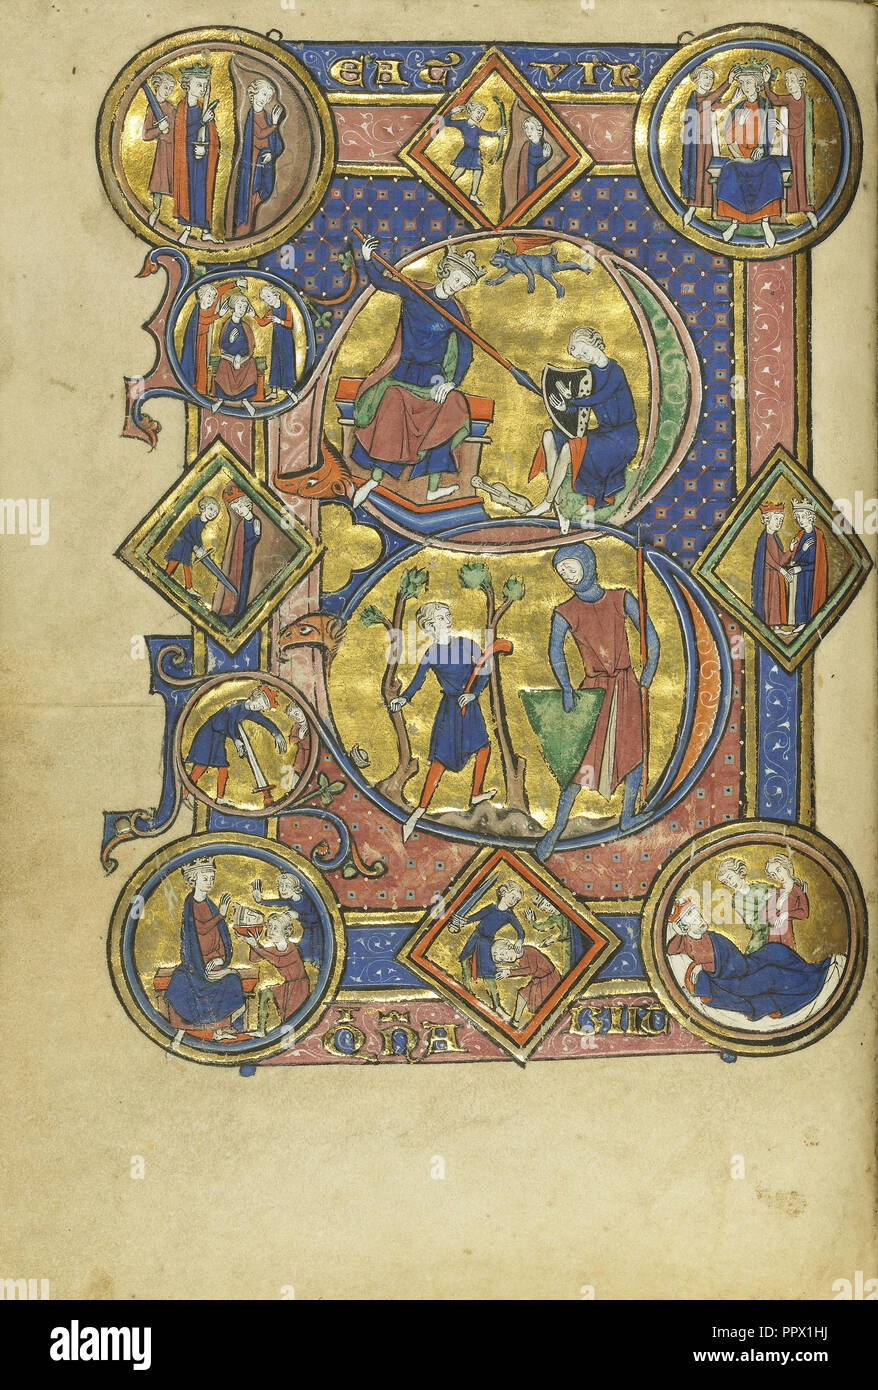 EAT VIR
QI NA BIIT
a
alamy
alamy
Image ID: PPX1HJ
www.alamy.com